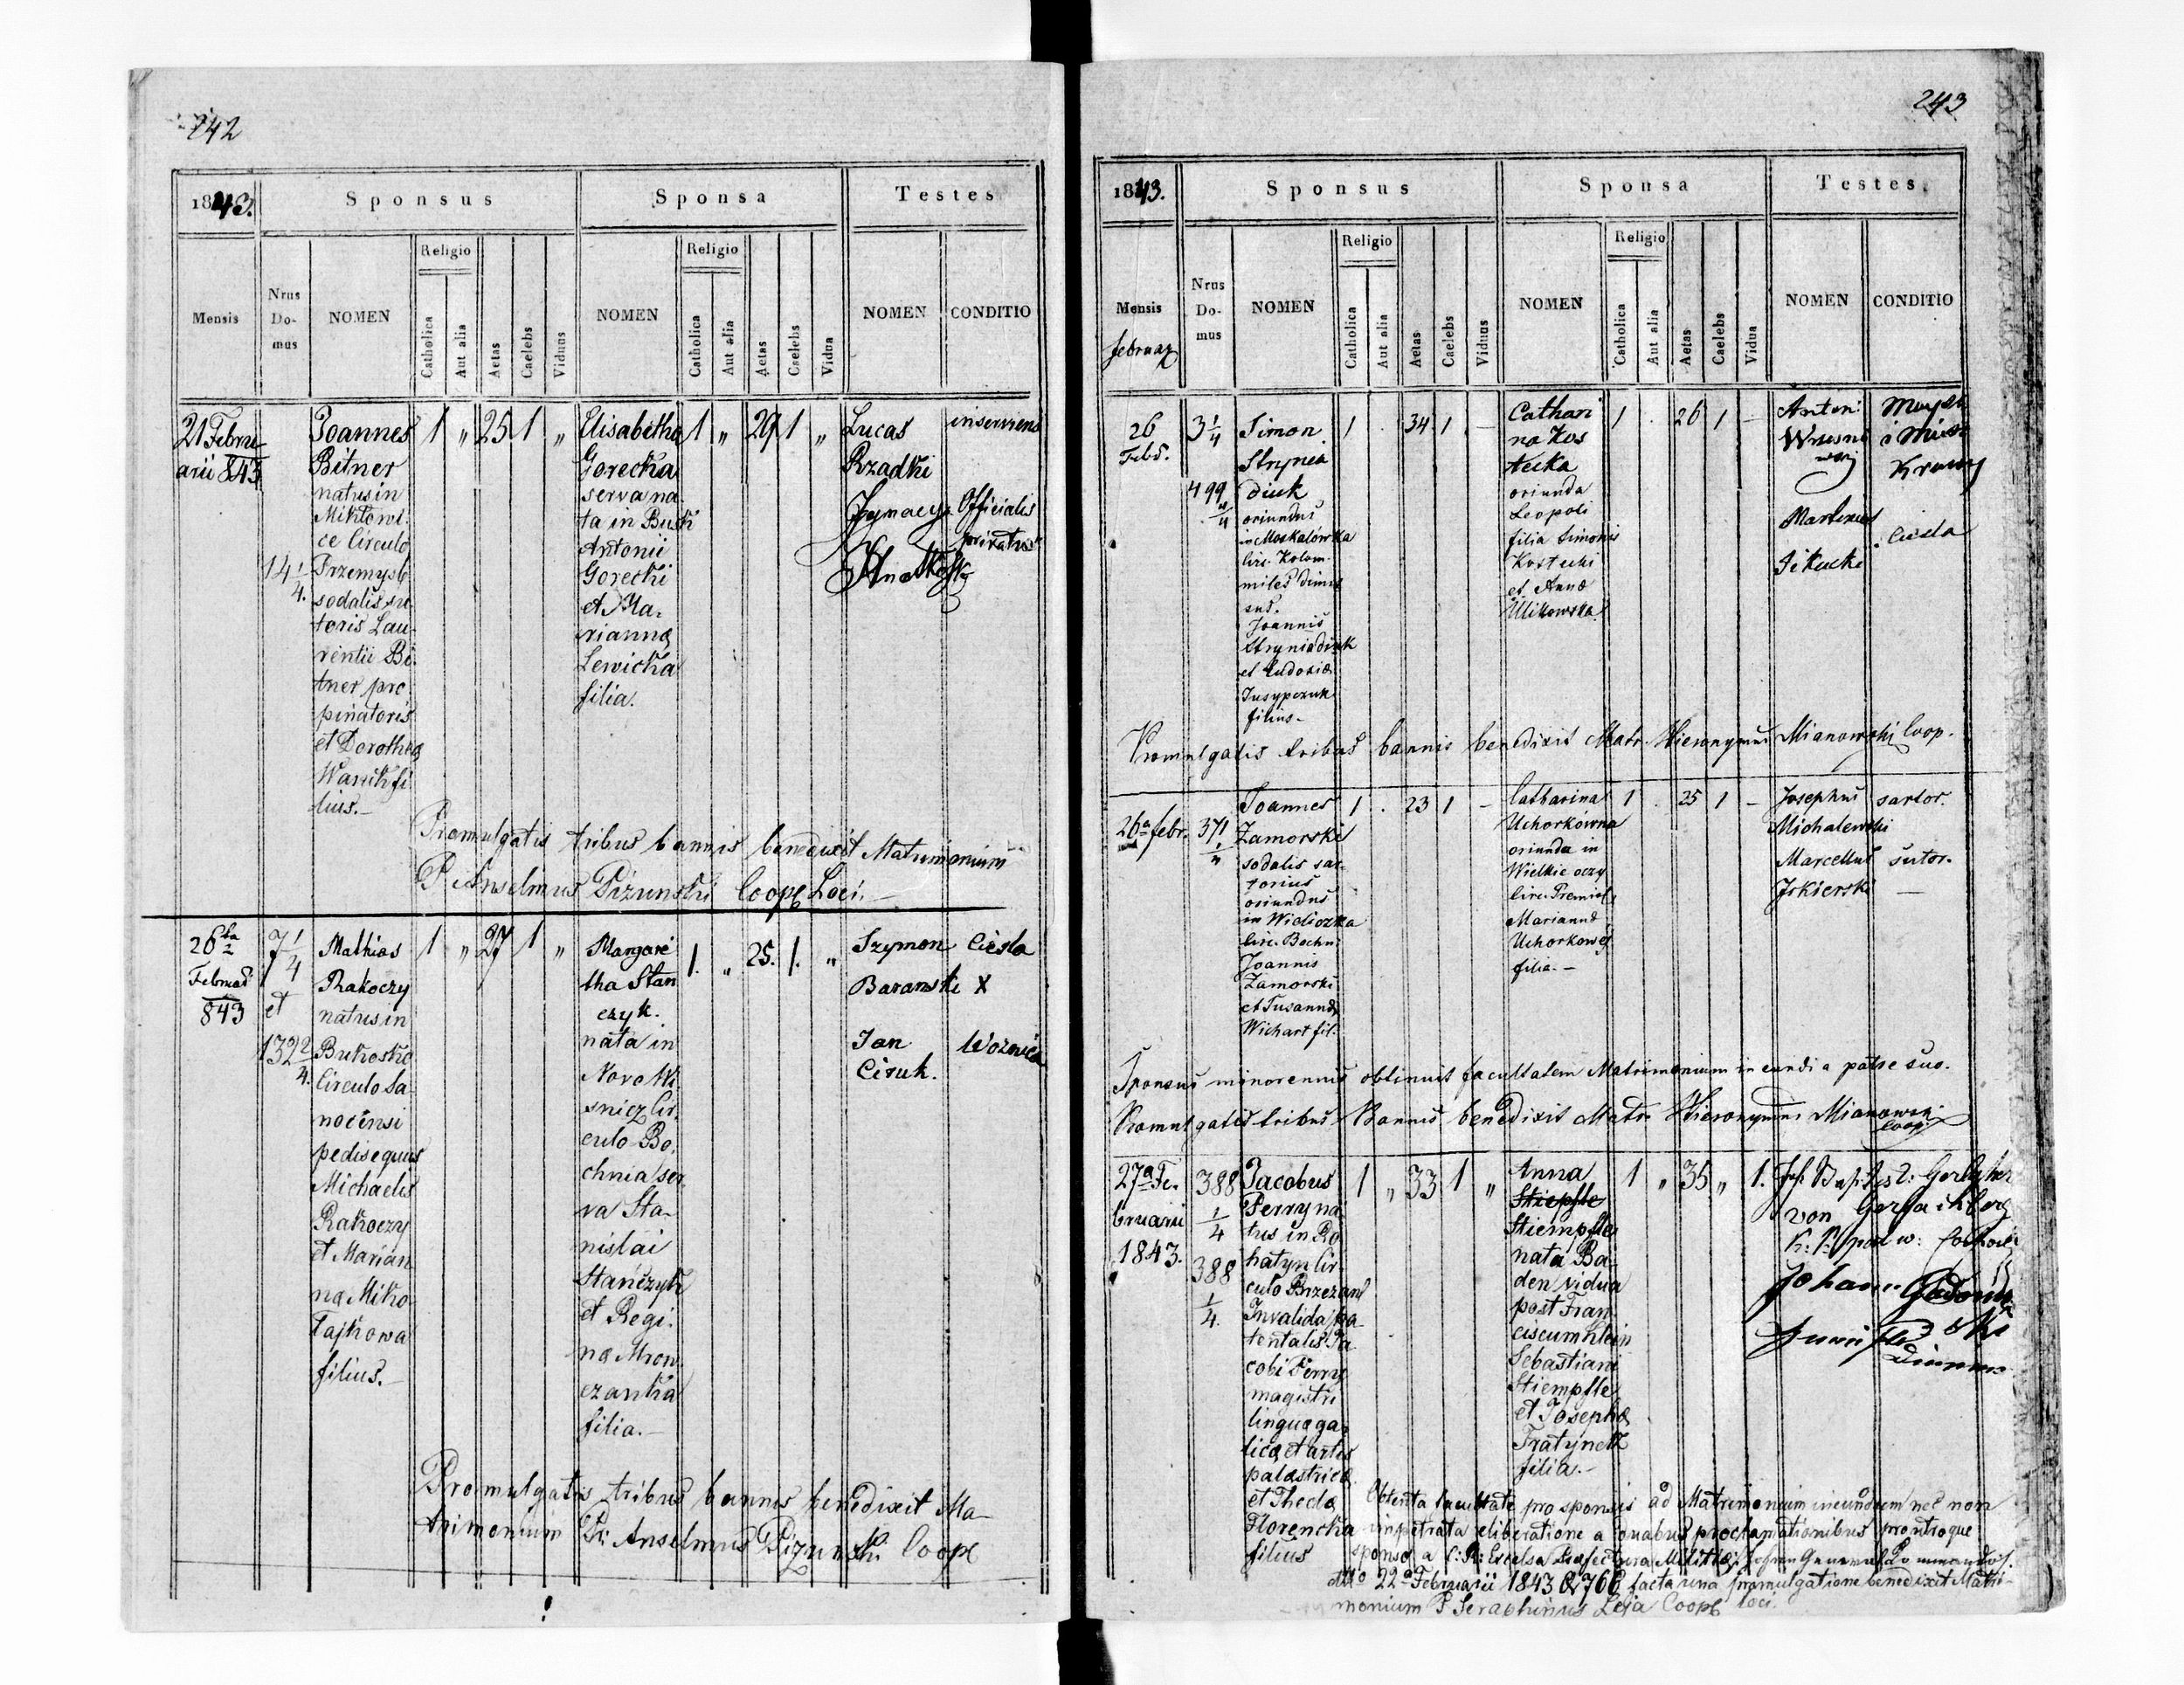 242
1843.
Sponsus
Sponsa
Testes
Mensis
Nrus Do- mus
NOMEN
Religio
Catholica
Aut alia
Aetas
Caelebs
Viduus
NOMEN
Religio
Catholica
Aut alia
Aetas
Caelebs
Vidua
NOMEN
CONDITIO
21 Febru-
arii 843
14 1/4.
Joannes
Bitner
natus in
Miktowi-
ce Circulo
Przemysl
sodalis su-
toris Lau-
rentii Bi-
tner pro-
pinatoris
et Dorothea
Wanik fi-
lius.-
1 " 25 1 "
Elisabetha
Gorecka
serva na-
ta in Busk
Antonii
Gorecki
et Ma-
rianna
Lewicka
filia.
1 " 29 1 "
Lucas
Rzadki
inserviens
Officialis
privatus
Promulgatis tribus bannis benedixit Matrimonium
P. Anselmus Pizunski Coop. Loci.-
26ta
Februar
843
7 1/4
et
132 2/4.
Mathias
Rakoczy
natus in
Bukosko
Circulo Sa-
nocensi
pedisequus
Michaelis
Rakoczy
et Marian-
na Miko-
łajkowa
filius.-
1 " 27 1 "
Margare-
tha Stan-
czyk.
nata in
Novo Wi-
snicz Cir-
culo Bo-
chnia ser-
va Sta-
nislai
Stańczyk
et Regi-
na Mron-
czanka
filia.-
1. " 25. 1. "
Szymon Ciesla
Baranski X
Jan
Ciruk.
Promulgatis tribus bannis benedixit Ma-
trimonium Pr. Anselmus Pizunski Coop
243
1843.
Sponsus
Sponsa
Testes.
Mensis
Nrus Do- mus
NOMEN
Religio
Catholica
Aut alia
Aetas
Caelebs
Viduus
NOMEN
Religio
Catholica
Aut alia
Aetas
Caelebs
Vidua
NOMEN
CONDITIO
februar
26
Feb.
3 1/4
499
4/4
Simon
Strynia
diuk
oriundus
in Moskalówka
Circ. Kolom.
miles dimis
sus.
Joannis
Stryniadiuk
et Eudoxia
Jusypczuk
filius-
1 . 34 1 -
Cathari
na Kos
tecka
oriunda
Leopoli
filia Simonis
Kostecki
et Anna
Ulikowska
1 . 26 1 -
Antoni
Martinus
Ciesla
Promulgatis tribus bannis benedixit Matr. Hieronymus Mianowski Coop.
26a febr.
371
1/4
Joannes
Zamorski
sodalis sar-
torius
oriundus
in Wieliczka
Circ. Bochn.
Joannis
Zamorski
et Susanna
Wichart fil.
1 . 23 1 -
Catharina
Uchorkowna
oriunda in
Wielkie oczy
Circ. Premisl.
Marianna
Uchorkowej
filia.-
1 . 25 1 -
Josephus sartor.
Michalewski
Marcellus sutor.
Iskierski -
Sponsus minorennis obtinuit facultatem Matrimonium ineundi a patre suo.
Promulgatis tribus Bannis benedixit Matr. Hieronymus Mianowski
Coop
27a Fe-
bruarii
1843.
388
1/4
388
1/4.
Jacobus
Perry na-
tus in Ro-
hatyn Cir-
culo Brzezan
Invalida pa-
tentalis Ja-
cobi Perry
magistri
lingua ga-
lica et artis
palastrica
et Theda
Florencka
filius
1 " 33 1 "
Anna
Stiepfle
Stiempfle
nata Ba-
den vidua
post Fran-
ciscum Klein
Sebastiani
Stiempfle
et Josepha
Fratynek
filia.-
1 " 35 " 1.
von
Johann
Obtenta facultate pro sponsis ad Matrimonium ineundum nec non
impetrata eliberatione a duabus proclamationibus pro utroque
sponso a C: R: Excelsa Prafectura General Commando
ddto 22a Februarii 1843 facta una promulgatione benedixit Matri-
monium P Seraphinus Leja Coop loci.